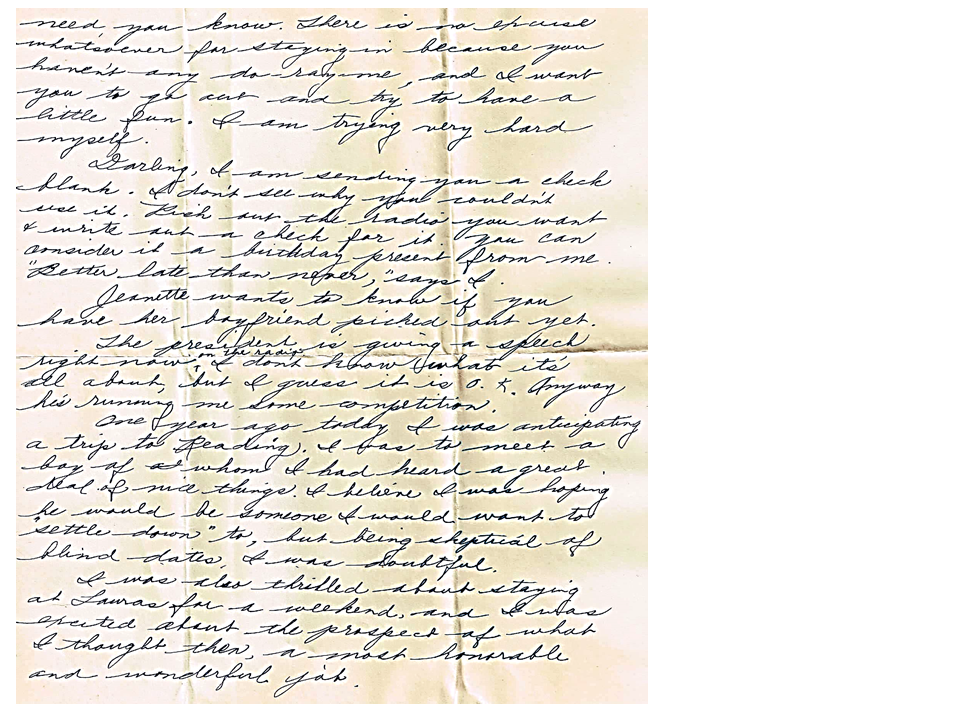 need, you know. There is no excuse
whatsoever for staying in because you
haven't any do-ray-me, and I want
you to go out and try to have a
little fun. I am trying very hard
myself.
Darling, I am sending you a check
blank. I don't see why you couldn't
use it. Pick out the radio you want
& write out a check for it. You can
consider it a birthday present from me.
"Better late than never," says I.
Jeanette wants to know if you
have her boyfriend picked out yet.
The president is giving a speech
right now on the radio. I don't know what it's
all about, but I guess it is O.K. Anyway
he's running me some competition.
One year ago today I was anticipating
a trip to Reading. I was to meet a
boy of whom I had heard a great
deal of nice things. I believe I was hoping
he would be someone I would want to
"settle down" to, but being skeptical of
blind dates, I was doubtful.
I was also thrilled about staying
at Lauras for a weekend, and I was
excited about the prospect of what
I thought then, a most honorable
and wonderful job.